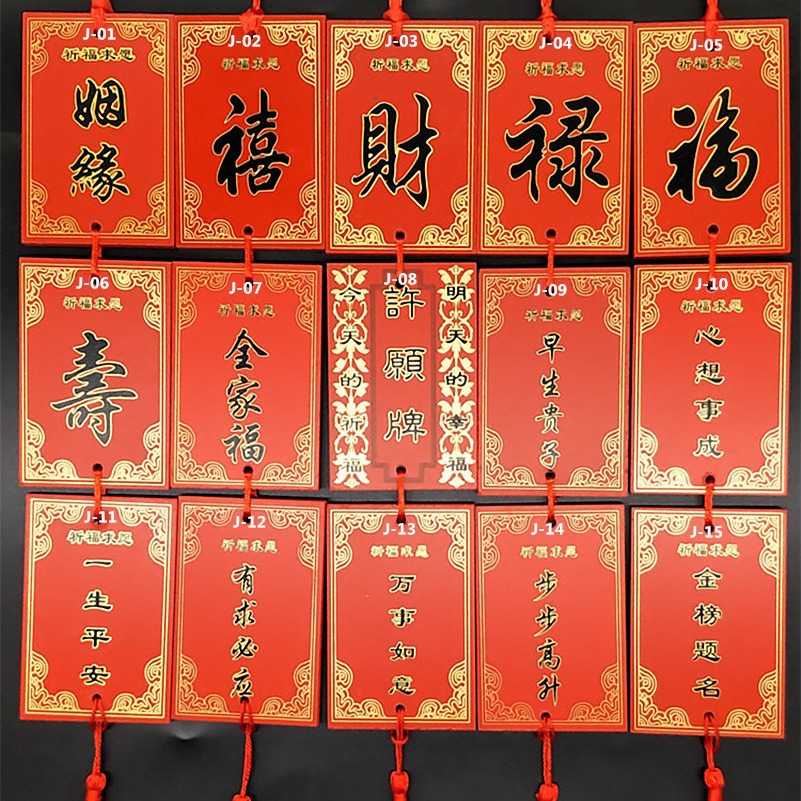 J-01
祈福求愿
姻
緣
J-02
祈福求愿
禧
J-03
祈福求愿
財
J-04
祈福求愿
禄
J-05
祈福求愿
福
J-06
祈福求愿
壽
J-07
祈福求愿
全
家
福
J-08
明天的幸福
許願牌
今天的祈福
J-09
祈福求愿
早
生
贵
子
J-10
祈福求愿
心
想
事
成
J-11
祈福求愿
一
生
平
安
J-12
祈福求愿
有
求
必
应
J-13
祈福求愿
万
事
如
意
J-14
祈福求愿
步
步
高
升
J-15
祈福求愿
金
榜
题
名